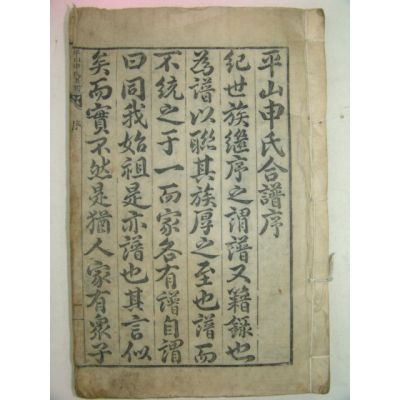 平山申氏合譜序
紀世族繼序之謂譜又籍錄也
為譜以聯其族厚之至也譜而
不統之于一而家各有譜自謂
曰同我始祖是亦譜也其言似
矣而實不然是猶人家有衆子